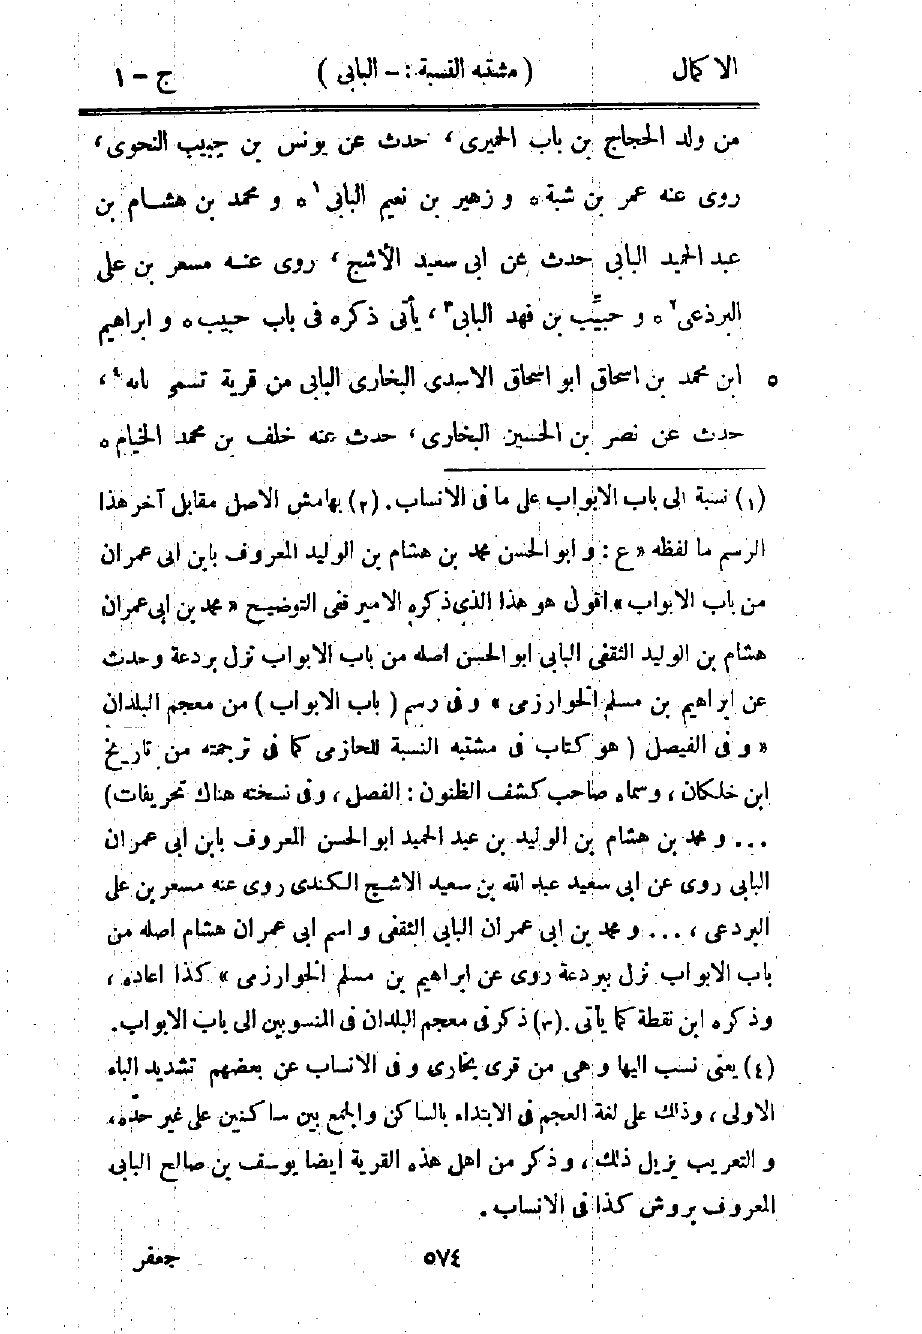 الاكمال ( مشتبه النسبة : – البابى ) ج – ١
من ولد الحجاج بن باب الحميرى ، حدث عن يونس بن حبيب النحوى ،
روى عنه عمر بن شبة ٥ و زهير بن نعيم البابى ١ ٥ و محمد بن هشام بن
عبد الحميد البابى حدث عن ابى سعيد الأشج ، روى عنه مسعر بن على
البرذعى ٢ ٥ و حبيّب بن فهد البابى ٣ ، يأتى ذكره فى باب حبيب ٥ و ابراهيم
ابن محمد بن اسحاق ابو اسحاق الاسدى البخارى البابى من قرية تسمى بابه ٤ ، ٥
حدث عن نصر بن الحسين البخارى ، حدث عنه خلف بن محمد الخيام ٥
(١) نسبة الى باب الابواب على ما فى الانساب . (٢) بهامش الاصل مقابل آخر هذا
الرسم ما لفظه « ع : و ابو الحسن محمد بن هشام بن الوليد المعروف بابن ابى عمران
من باب الابواب » اقول هو هذا الذى ذكره الامير ففى التوضيح « محمد بن ابى عمران
هشام بن الوليد الثقفى البابى ابو الحسن اصله من باب الابواب نزل بردعة و حدث
عن ابراهيم بن مسلم الخوارزمى » و فى رسم ( باب الابواب ) من معجم البلدان
« و فى الفيصل ( هو كتاب فى مشتبه النسبة للحازمى كما فى ترجمته من تاريخ
ابن خلكان ، وسماه صاحب كشف الظنون : الفصل ، وفى نسخته هناك تحريفات )
... و محمد بن هشام بن الوليد بن عبد الحميد ابو الحسن المعروف بابن ابى عمران
البابى روى عن ابى سعيد عبد الله بن سعيد الاشج الكندى روى عنه مسعر بن على
البردعى ، ... و محمد بن ابى عمران البابى الثقفى و اسم ابى عمران هشام اصله من
باب الابواب نزل ببردعة روى عن ابراهيم بن مسلم الخوارزمى » كذا اعاده ،
وذكره ابن نقطة كما يأتى . (٣) ذكر فى معجم البلدان فى المنسوبين الى باب الابواب .
(٤) يعنى نسب اليها و هى من قرى بخارى و فى الانساب عن بعضهم تشديد الباء
الاولى ، وذلك على لغة العجم فى الابتداء بالساكن والجمع بين ساكنين على غير حدّه ،
و التعريب يزيل ذلك ، و ذكر من اهل هذه القرية ايضا يوسف بن صالح البابى
المعروف بروش كذا فى الانساب .
٥٧٤ جعفر